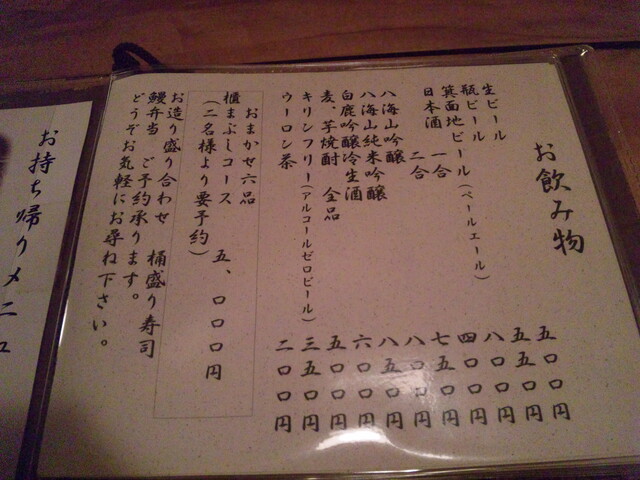 お飲み物
生ビール 五〇〇円
瓶ビール 五五〇円
箕面地ビール(ペールエール) 八〇〇円
日本酒 一合 四〇〇円
二合 七五〇円
八海山吟醸 八〇〇円
八海山純米吟醸 八五〇円
白鹿吟醸冷生酒 六〇〇円
麦、芋焼酎 全品 五〇〇円
キリンフリー(アルコールゼロビール) 三五〇円
ウーロン茶 二〇〇円
おまかせ六品
櫃まぶしコース 五、〇〇〇円
(二名様より要予約)
お造り盛り合わせ 桶盛り寿司
鰻弁当 ご予約承ります。
どうぞお気軽にお尋ね下さい。
お持ち帰りメニュ